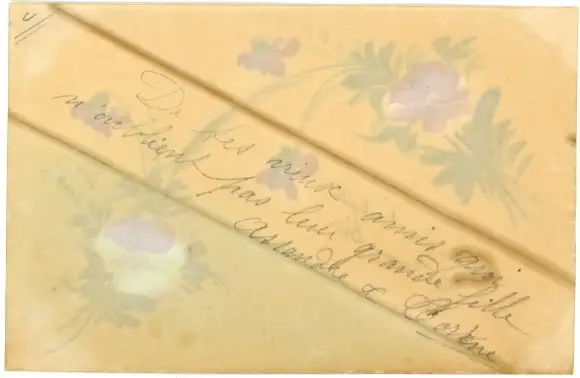 De ses vieux amis qui
n'oublient pas leur grande fille
Cassandre &